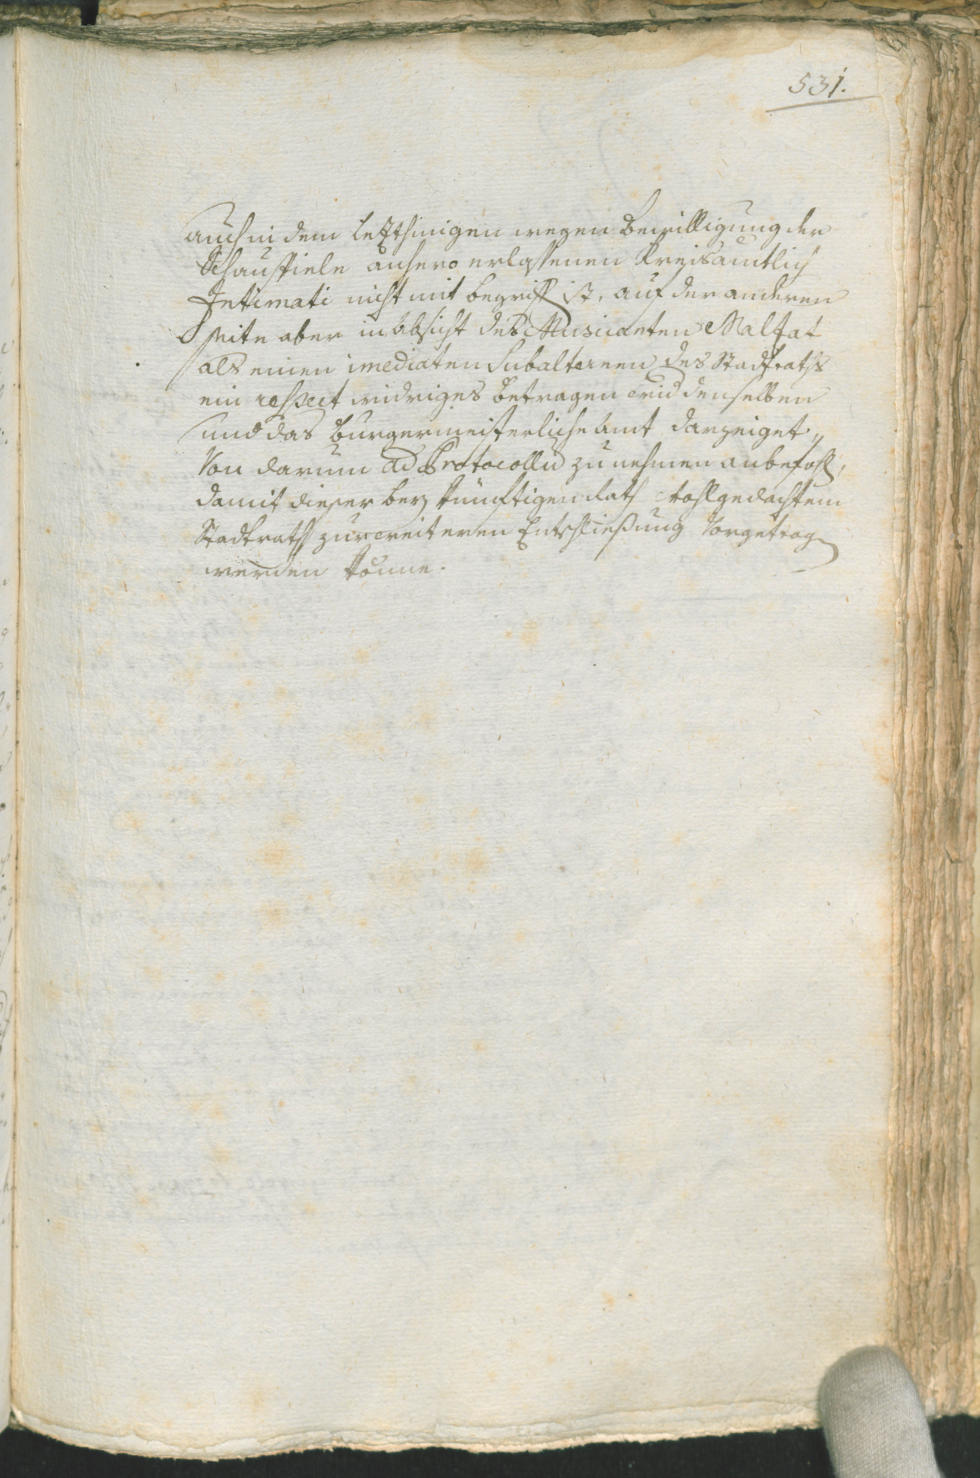 531.
auch in dem letzthinigen wegen Bewilligung der
Schauspiele anhero erlassenen Kreisamtlich
Intimati nicht mit begriff ist, auf der anderen
Seite aber in absicht des Musicanten Malfat
als einen imediaten Subalternen des Stadtraths
ein respect widriges betragen wid denselben
und das burgermeisterliche Amt darzeiget,,
Von darum ad Protocollu zu nehmen anbefohl,
damit dieser bey künftigen Rath wohlgedachtem
Stadtrath zur weiteren Entschließung Vorgetrag
werden könne.